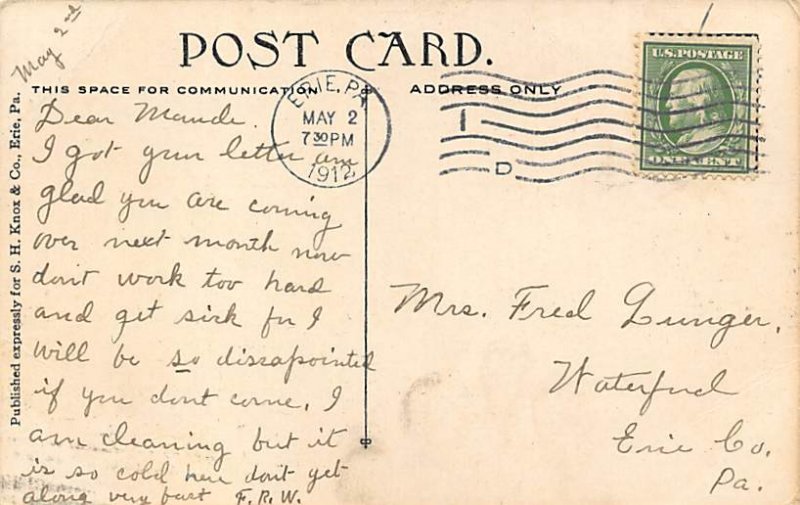 May 2nd
POST CARD.
THIS SPACE FOR COMMUNICATION
ADDRESS ONLY
ERIE, PA.
MAY 2
7 30 PM
1912
D
U.S. POSTAGE
ONE CENT
Published expressly for S. H. Knox & Co., Erie, Pa.
Dear Maude.
I got your letter am
glad you are coming
over next month now
dont work too hard
and get sick for I
will be so dissapointed
if you dont come, I
am cleaning but it
is so cold here dont get
along very fast F.R.W.
Mrs. Fred Gunger,
Waterford
Erie Co.
Pa.